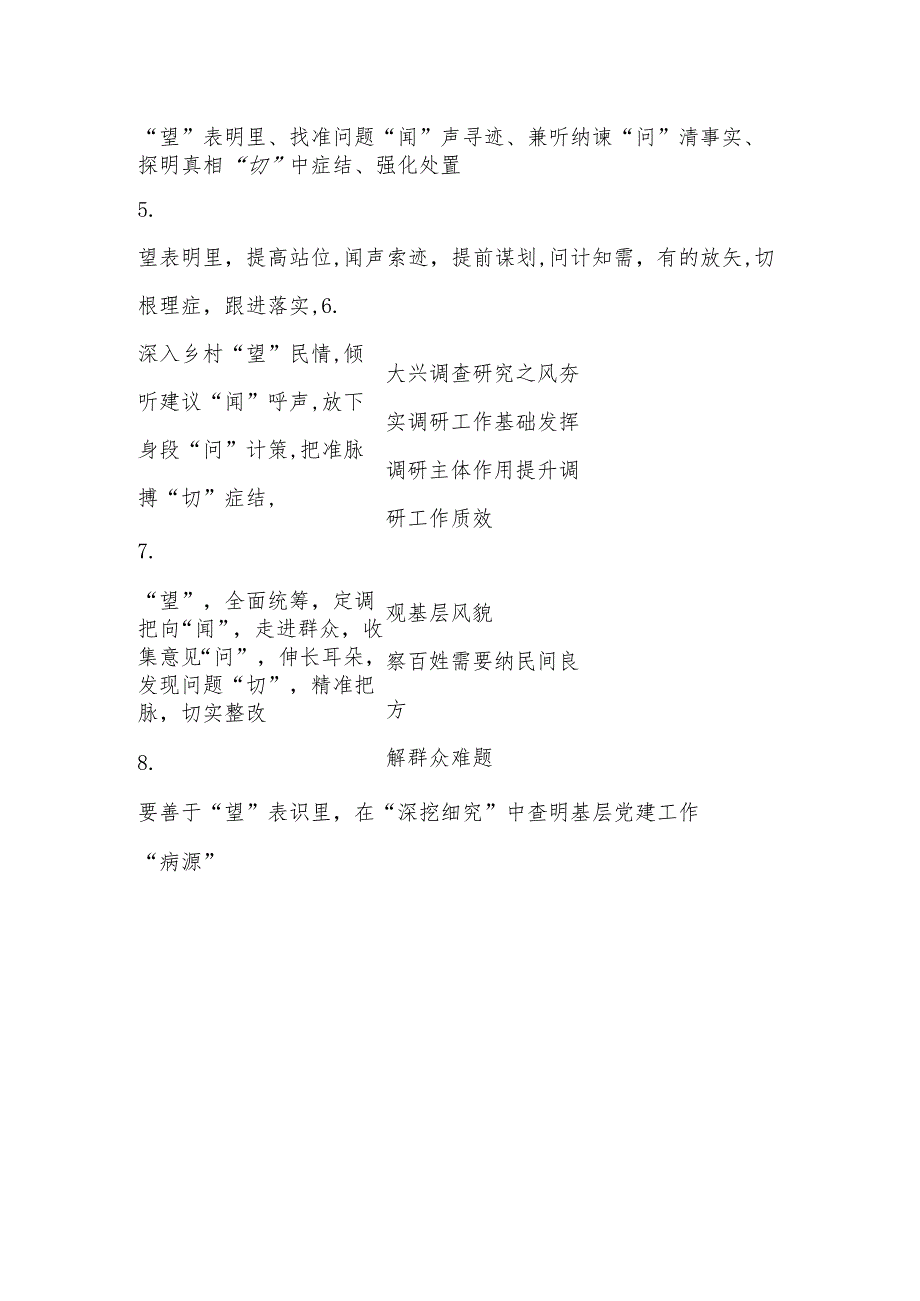 “望”表明里、找准问题“闻”声寻迹、兼听纳谏“问”清事实、
探明真相“切”中症结、强化处置
5.
望表明里，提高站位,闻声索迹，提前谋划,问计知需，有的放矢,切
根理症，跟进落实,6.
深入乡村“望”民情,倾
听建议“闻”呼声,放下
身段“问”计策,把准脉
搏“切”症结,
大兴调查研究之风夯
实调研工作基础发挥
调研主体作用提升调
研工作质效
7.
“望”，全面统筹，定调
把向“闻”，走进群众，收
集意见“问”，伸长耳朵，
发现问题“切”，精准把
脉，切实整改
观基层风貌
察百姓需要纳民间良
方
解群众难题
8.
要善于“望”表识里，在“深挖细究”中查明基层党建工作
“病源”